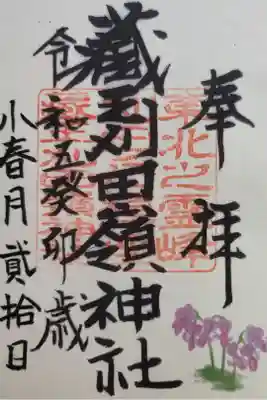 奉拝
東北之靈峰
藏刈田嶺神社
令和五癸卯歳
小春月貳拾日